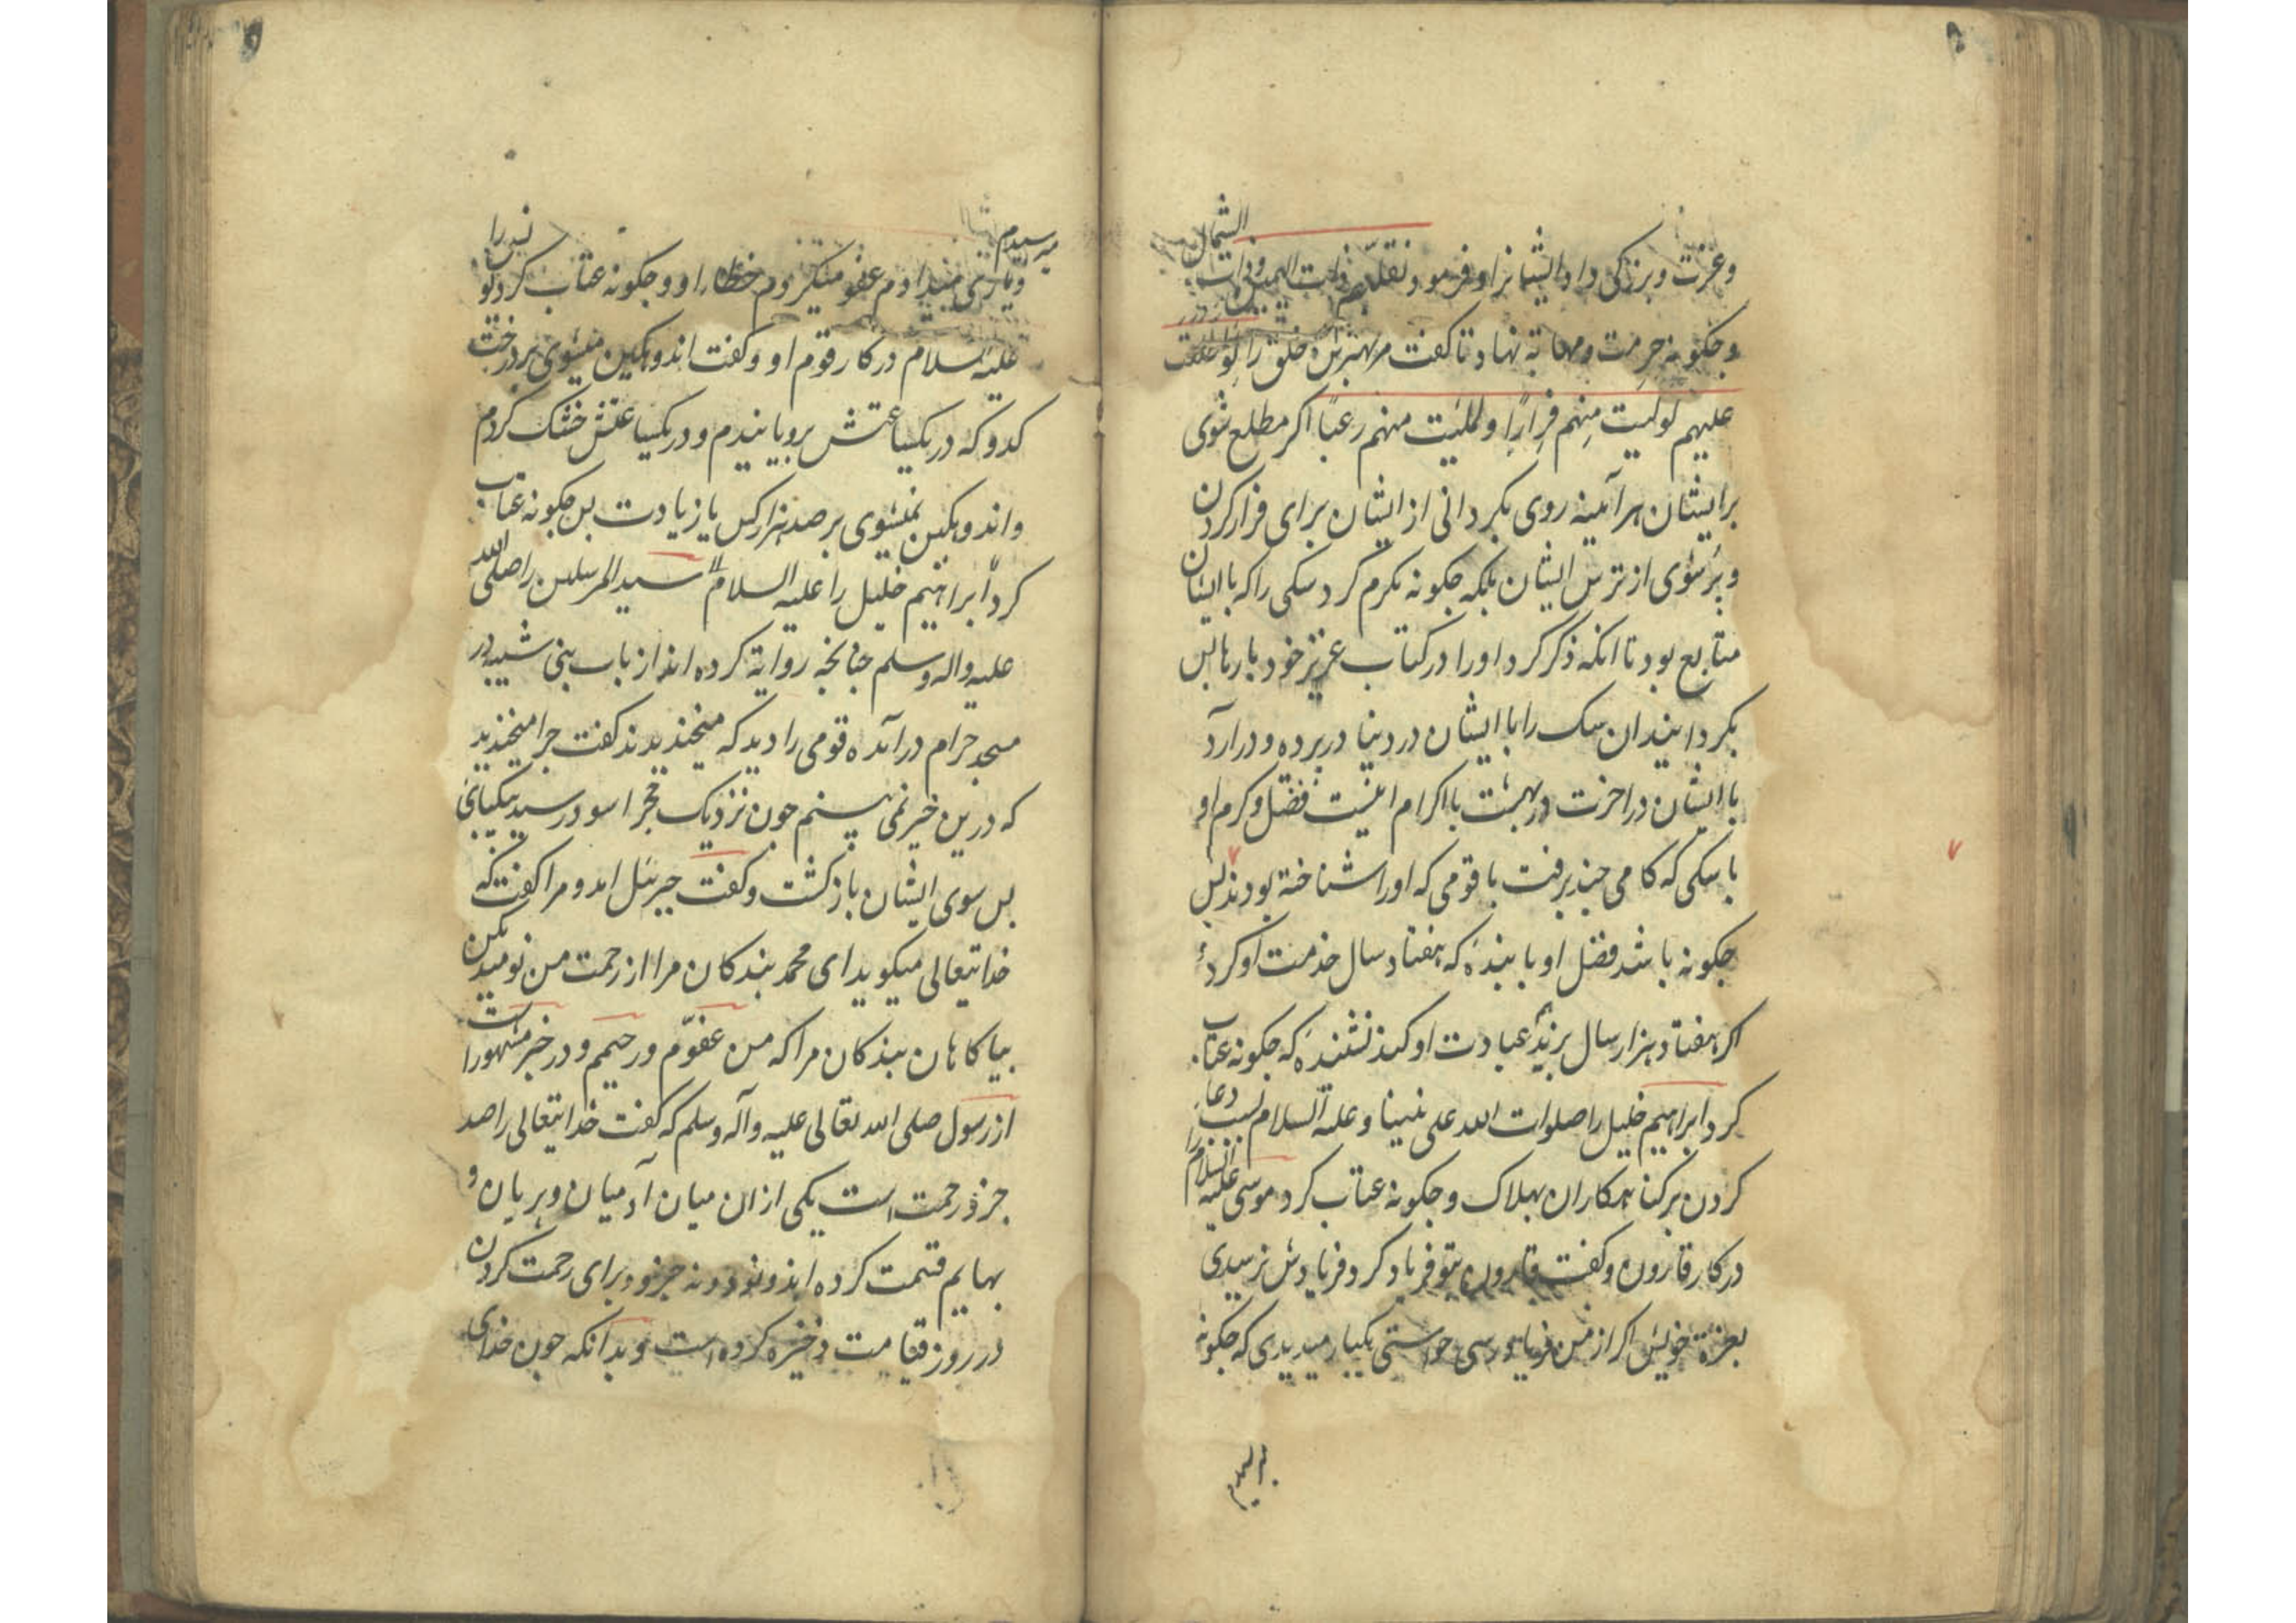 وعزت و بزرکی داد ایشانرا و فرمود و نقلبهم ذات الیمین و ذات الشمال
و جکونه حرمت و مهابه نهاد تا کفت مر بهترین خلق را لو اطلعت
علیهم لولیت منهم فرارًا و لملئت منهم رعبًا اکر مطلع شوی
برایشان هرآئینه روی بکردانی از ایشان برای فرار کردن
و پر شوی از ترس ایشان بلکه جکونه مکرم کرد سکی را که با ایشان
متابع بود تا انکه ذکر کرد اورا در کتاب عزیز خود بارها بس
بکردانید ان سک را با ایشان در دنیا در پرده و درآرد
با ایشان در اخرت در بهشت با اکرام اینست فضل و کرم او
با سکی که کامی جند برفت با قومی که اورا شناخته بودند بس
جکونه باشد فضل او با بندهٔ که هفتاد سال خدمت او کرد
اکر هفتاد هزار سال بزید عبادت او کند نشنیدهٔ که جکونه عتاب
کرد ابراهیم خلیل را صلوات الله علی نبینا و علیه السلام بسبب دعا
کردن بر کناهکاران بهلاک و جکونه عتاب کرد موسی علیه السلام را
در کار قارون و کفت قارون بتو فریاد کرد فریادش نرسیدی
بعزة خویش اکر از من فریادرسی خواستی یکبار میدیدی که جکونه
میرسیدم
و یاری میدادم عفو میکردم خطاء او و جکونه عتاب کرد یونس را
علیه السلام در کار قوم او و کفت اندوهکین میشوی بر درخت
کدو که در یکساعتش برویانیدم و در یکساعتش خشک کردم
و اندوهکین نمیشوی بر صد هزار کس یا زیادت بس جکونه عتاب
کرد ابراهیم خلیل را علیه السلام سید المرسلین را صلی الله
علیه واله وسلم جنانجه روایة کرده اند از باب بنی شیبه در
مسجد حرام درآمده قومی را دید که میخندیدند کفت جرا میخندید
که درین خیر نمی بینم جون نزدیک حجر اسود رسید
بس سوی ایشان بازکشت و کفت جبرئیل امد و مرا کفت که
خدایتعالی میکوید ای محمد بندکان مرا از رحمت من نومید مکن
بیاکاهان بندکان مرا که من عفوم و رحیمم و در خبر مشهور است
از رسول صلی الله تعالی علیه وآله وسلم که کفت خدایتعالی را صد
جزؤ رحمت است یکی از ان میان آدمیان و پریان و
بهایم قسمت کرده اند و نود و نه جزو برای رحمت کردن
در روز قیامت ذخیره کرده است و بدانکه جون خدای